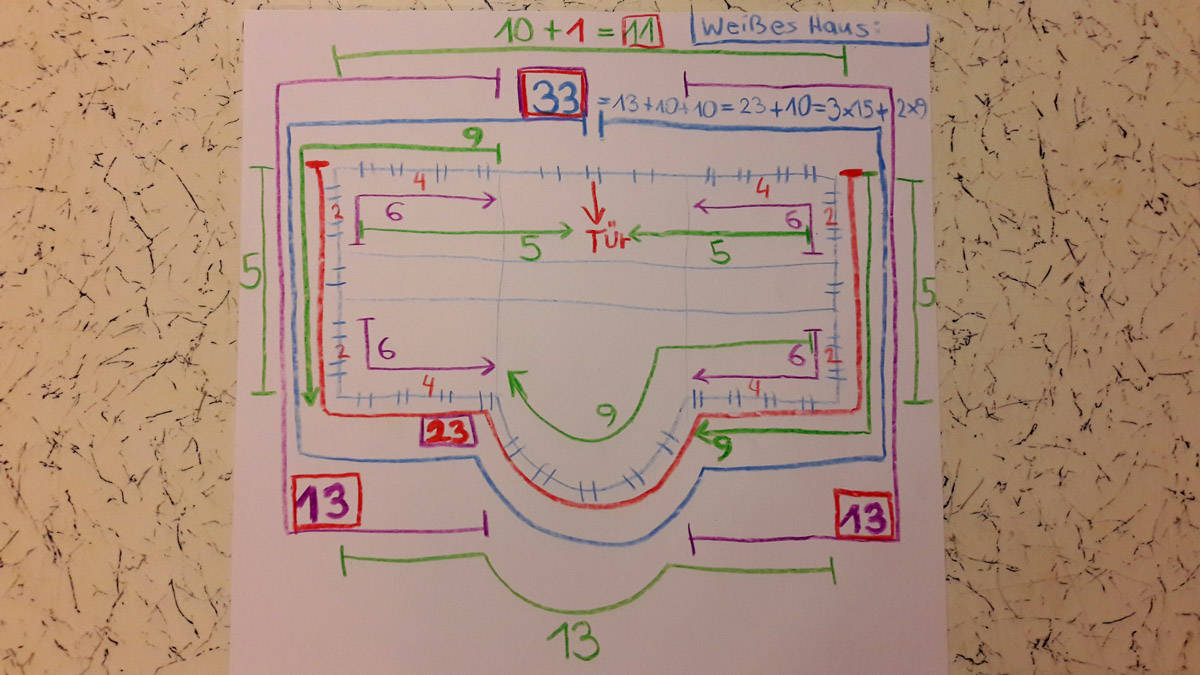 10 + 1 = 11
Weißes Haus:
33 = 13 + 10 + 10 = 23 + 10 = 3 x 15 + 2 x 9
9
4
4
2
6
6
2
5
Tür
5
5
5
2
6
6
2
4
4
9
23
9
13
13
13